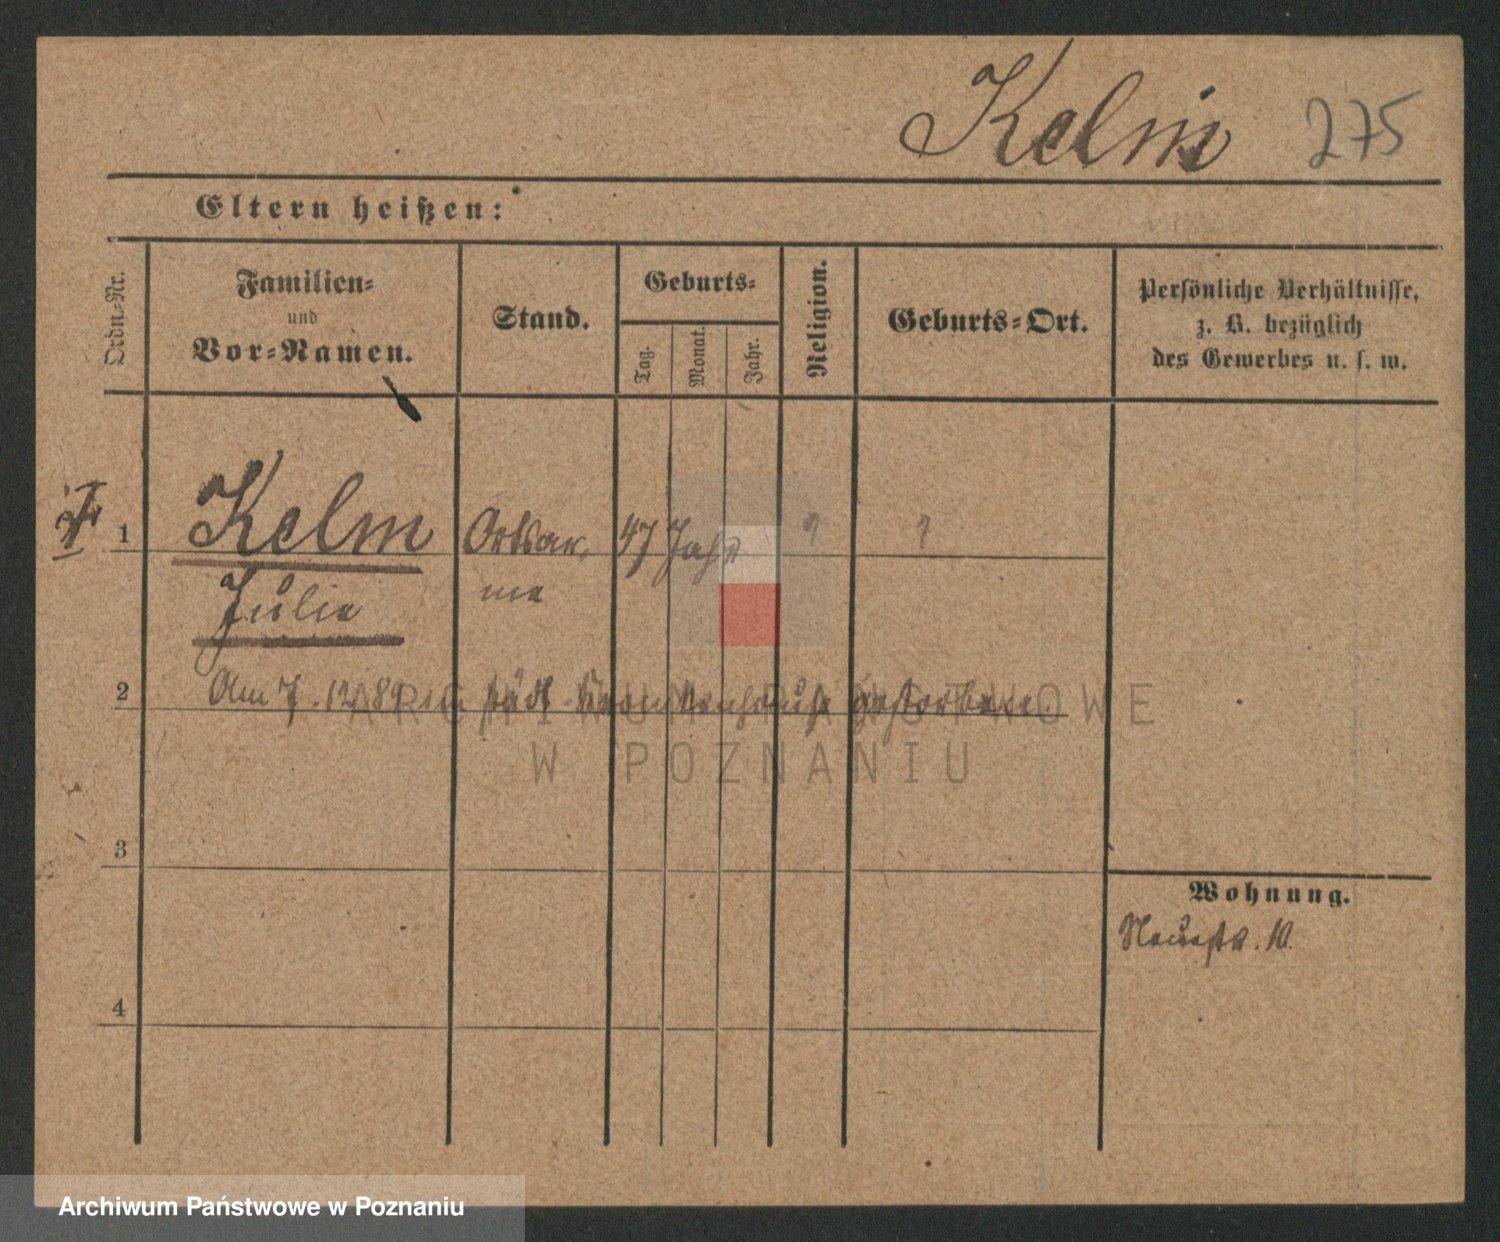 Kelm 275
Eltern heißen:
Ordn.-Nr.
Familien-
und
Vor-Namen.
Stand.
Geburts-
Tag.
Monat.
Jahr.
Religion.
Geburts-Ort.
Persönliche Verhältnisse,
z. B. bezüglich
des Gewerbes u. s. w.
1 Kelm Ortsar- 47 Jahr ? ?
Julie me
2 Am 7. 12 89 im städt. Krankenhause gestorben.
ARCHIWUM PAŃSTWOWE
W POZNANIU
3
Wohnung.
Neuestr. 10.
4
Archiwum Państwowe w Poznaniu